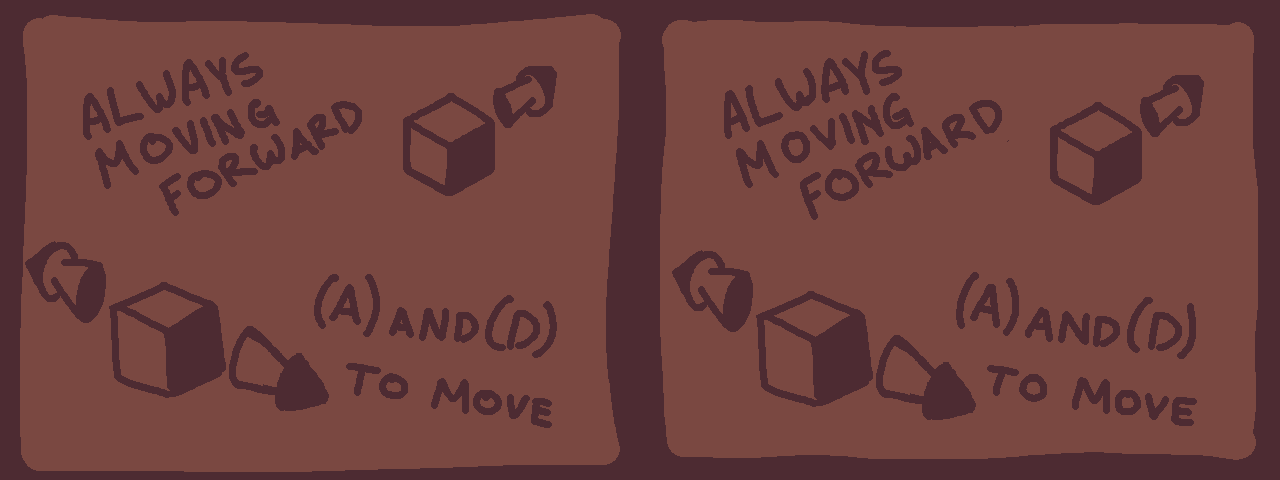 ALWAYS
MOVING
FORWARD
(A) AND (D)
TO MOVE
ALWAYS
MOVING
FORWARD
(A) AND (D)
TO MOVE